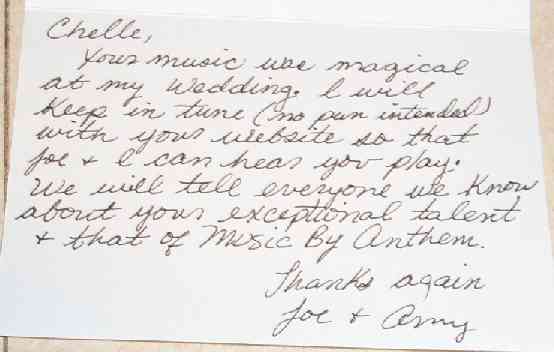 Chelle,
Your music was magical
at my Wedding. I will
Keep in tune (no pun intended)
with your website so that
Joe & I can hear you play.
We will tell everyone we Know
about your exceptional talent
& that of Music By Anthem.
Thanks again
Joe & Amy